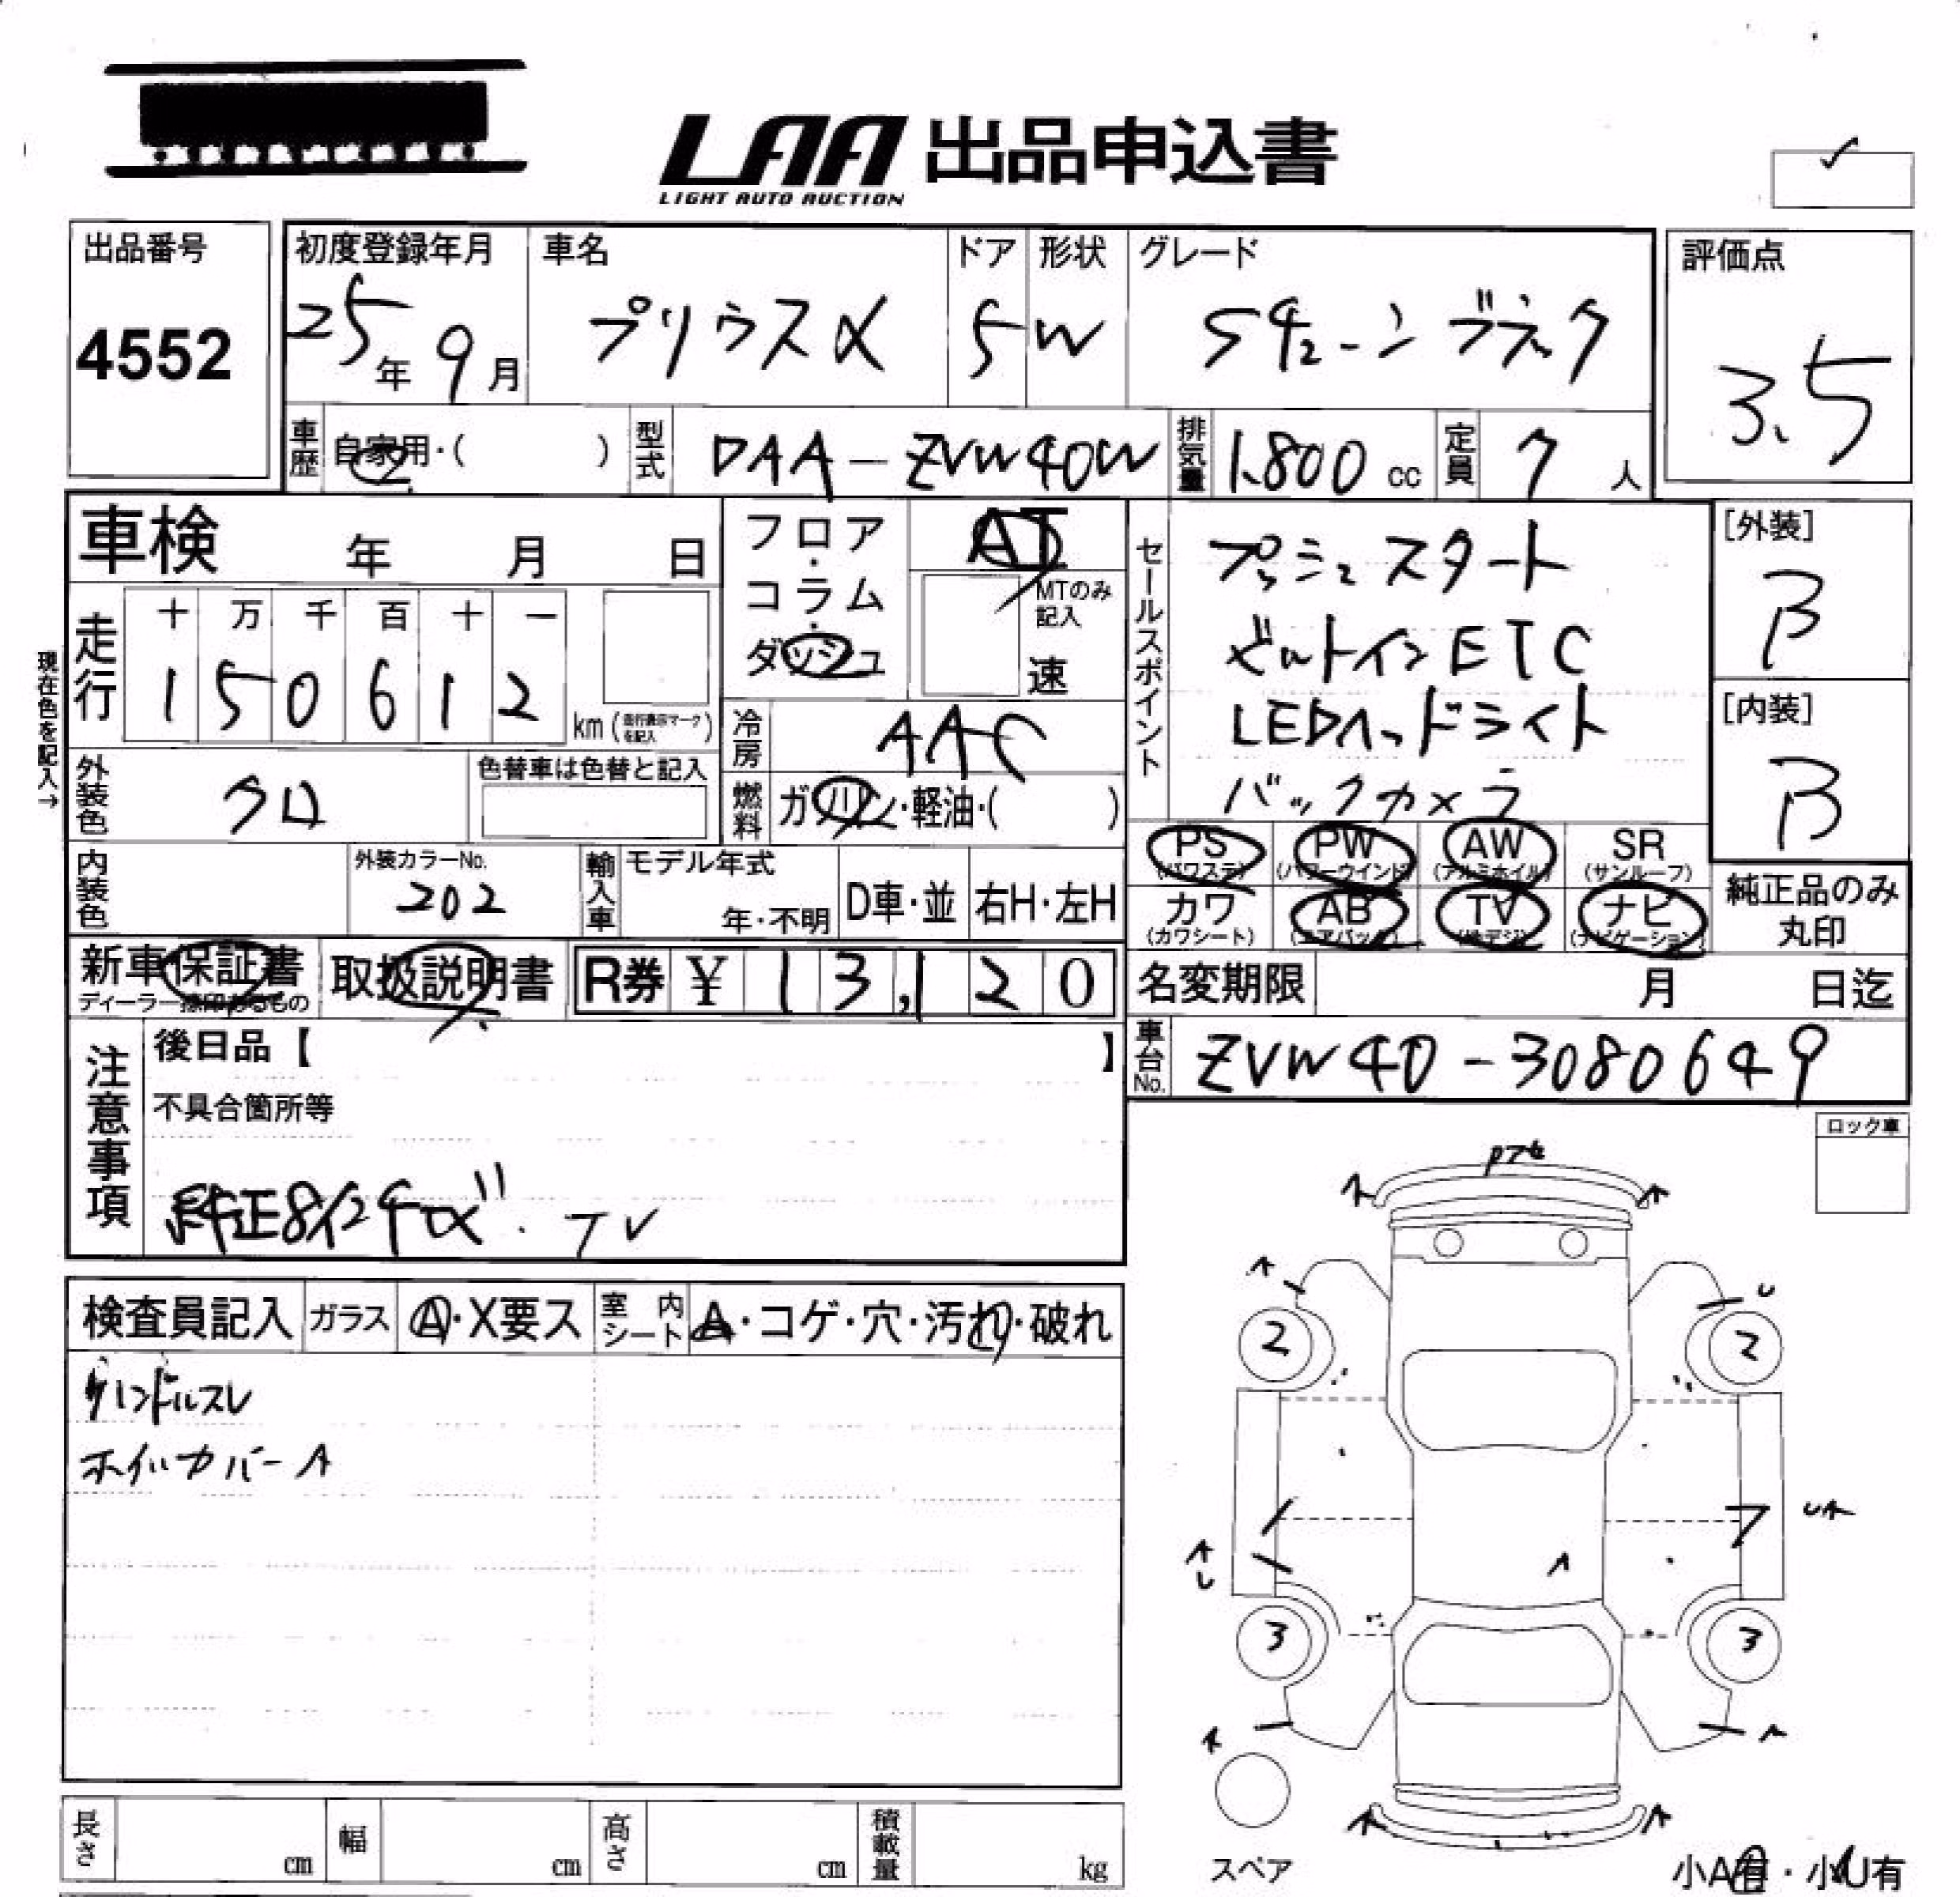 LAA 出品申込書
LIGHT AUTO AUCTION
出品番号
4552
初度登録年月
25年 9月
車名
プリウスα
ドア
5
形状
W
グレード
Sチューンブラック
評価点
3.5
車歴
自家用・( )
型式
DAA-ZVW40W
排気量
1.800 cc
定員
7 人
車検 年 月 日
フロア・コラム・ダッシュ
AT
MTのみ記入
速
走行
十 万 千 百 十 一
1 5 0 6 1 2
km (走行表示マークを記入)
現在色を記入→
冷房
AAC
燃料
ガソリン・軽油・( )
外装色
クロ
色替車は色替と記入
内装色
外装カラーNo.
202
輸入車
モデル年式
年・不明
D車・並
右H・左H
セールスポイント
プッシュスタート
ビルトインETC
LEDヘッドライト
バックカメラ
[外装]
B
[内装]
B
PS (パワステ)
PW (パワーウインド)
AW (アルミホイル)
SR (サンルーフ)
カワ (カワシート)
AB (エアバック)
TV (地デジ)
ナビ (ナビゲーション)
純正品のみ丸印
新車保証書
ディーラー捺印あるもの
取扱説明書
R券 ¥ 13,120
名変期限 月 日迄
車台No.
ZVW40-3080649
注意事項
後日品【 】
不具合箇所等
TV
ロック車
検査員記入
ガラス
A・X要ス
室内シート
A・コゲ・穴・汚れ・破れ
ハンドルスレ
ホイルカバーA
A A
A U
2 2
A U
UA
A
3 3
A A
A A
スペア
小A有・小U有
長さ cm
幅 cm
高さ cm
積載量 kg